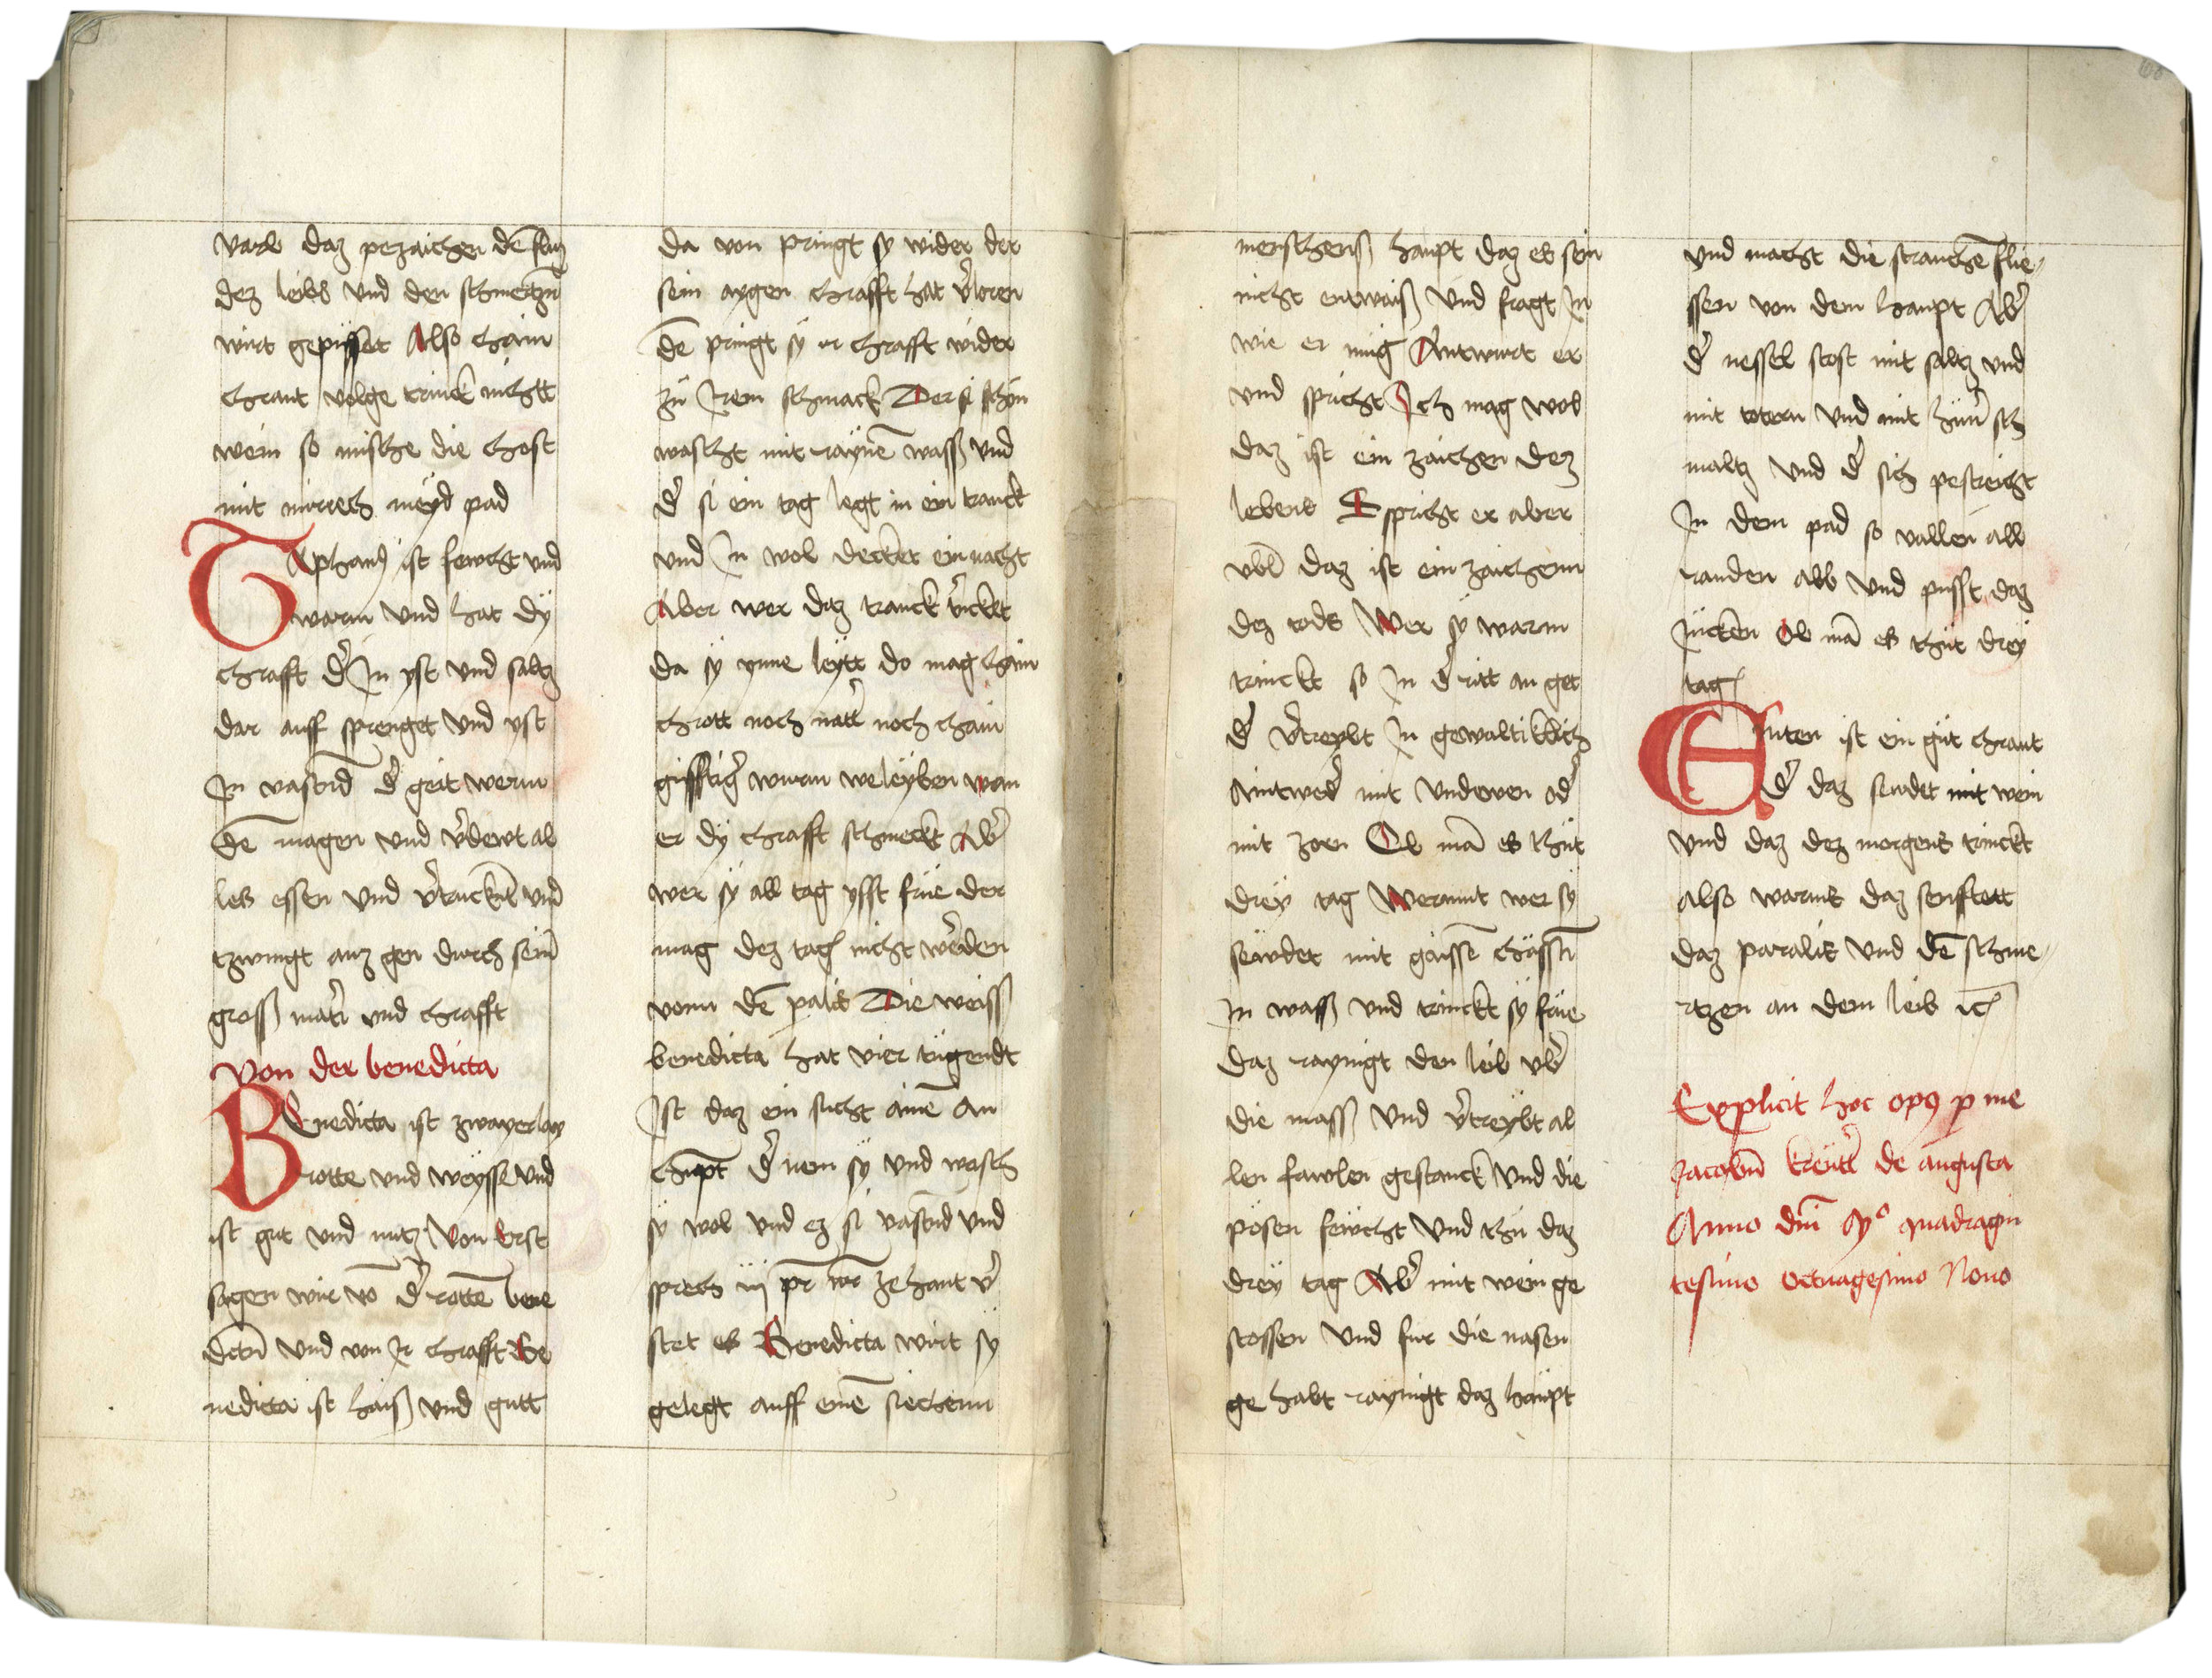 varb daz pezaichen dē fluz
dez leibs vnd den schmertzn̄
wirt gepüsset Also chain
chraut volge trinck nichtt
wein so mische die chost
mit mirrech meyd pad
Taphanꝰ ist fewcht vnd
warm vnd hat dÿ
chrafft d' In yst vnd saltz
dar auff sprenget vnd yst
In vastnd d' geit werm
dē magen vnd v'dewt al
les essen vnd v'truckēt vnd
tzwingt auz gen durch sein̄
gross mat'i vnd chrafft
Von der benedicta
Benedicta ist zwayerlay
rotte vnd weysse vnd
ist gut vnd nutz Von Erst
sagen wir vō d' rottē bene
dictn̄ vnd von Ir chrafft Be
nedicta ist haiss vnd gutt
da von pringt sy wider der
sein aygen chrafft hat v'loren
dē pringt sÿ ir chrafft wider
zü Irem schmack Der si schön
wascht mit raynē wass vnd
d' si ein tag legt in ein tranck
vnd In wol decket ein nacht
Aber wer daz tranck trickt
da sÿ ynne leytt do mag chain
chrott noch natt' noch chain
gifftig' wurm weleyben wan
er dÿ chrafft schmeckt Ab'
wer sÿ all tag ysst früe der
mag dez tags nicht werden
vonn dē palis Die weiss
benedicta hat vier tügendt
Ist daz ein sucht ainē an
chupt d' nem sÿ vnd wasch
sÿ wol vnd ez si vastnd vnd
sprech iij pr̄ nr̄ ze hant v'
stet es Benedicta wirt sÿ
gelegt auff einē siechenn
menschens haupt daz es sein
nicht entwaiss vnd fragt In
wie er müg Antwurt er
vnd spricht Ich mag wol
daz ist ein zaichen dez
lebens Spricht er aber
vbl daz ist ein zaichenn
dez tods Wer sÿ warm
trinckt so In d' ritt an get
d' v'treybt In gewaltiklich
aintwed' mit vndewen od'
mit zorn Ob mā es thüt
dreÿ tag Wermut wer sÿ
sewdet mit gaissē chässn̄
In wass vnd trinckt sÿ früe
daz raynigt den leib vb'
die mass vnd v'treybt al
len fawlen gestanck vnd die
pösen fewcht vnd thü daz
dreÿ tag Ab' mit wein ge
stossen vnd für die nasen
ge habt raynigt daz haupt
vnd macht die strauchē flie⸗
ssen von dem haupt Ab'
d' nessel stost mit saltz vnd
mit totern vnd mit hün' sch
maltz vnd d' sich pestreicht
In dem pad so vallen all
rauden abb vnd püsst daz
Jücken Ob mā es thüt dreÿ
tag
Enten ist ein güt chraut
d' daz siudet mit wein
vnd daz dez morgens trinckt
also warms daz senfftett
daz paralis vnd dē schme⸗
rtzen an dem leib ic
Explicit hoc opꝰ p me
Jacobū kreütt' de augusta
Anno dn̄i Mº quadragin
tesimo octuagesimo Nono